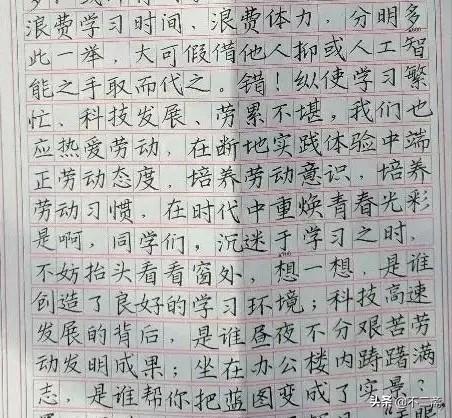 浪费学习时间、浪费体力，分明多
此一举，大可假借他人抑或人工智
能之手取而代之。错！纵使学习繁
忙、科技发展、劳累不堪，我们也
应热爱劳动，在断地实践体验中端
正劳动态度，培养劳动意识，培养
劳动习惯，在时代中重焕青春光彩
是啊，同学们，沉迷于学习之时，
不妨抬头看看窗外，想一想，是谁
创造了良好的学习环境；科技高速
发展的背后，是谁昼夜不分艰苦劳
动发明成果；坐在办公楼内踌躇满
志，是谁帮你把蓝图变成了实景？
头条@不二斋